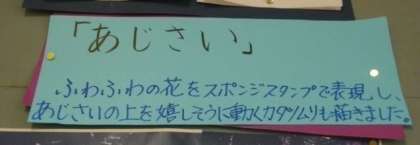 「あじさい」
ふわふわの花をスポンジスタンプで表現し、
あじさいの上を嬉しそうに動くカタツムリも描きました。